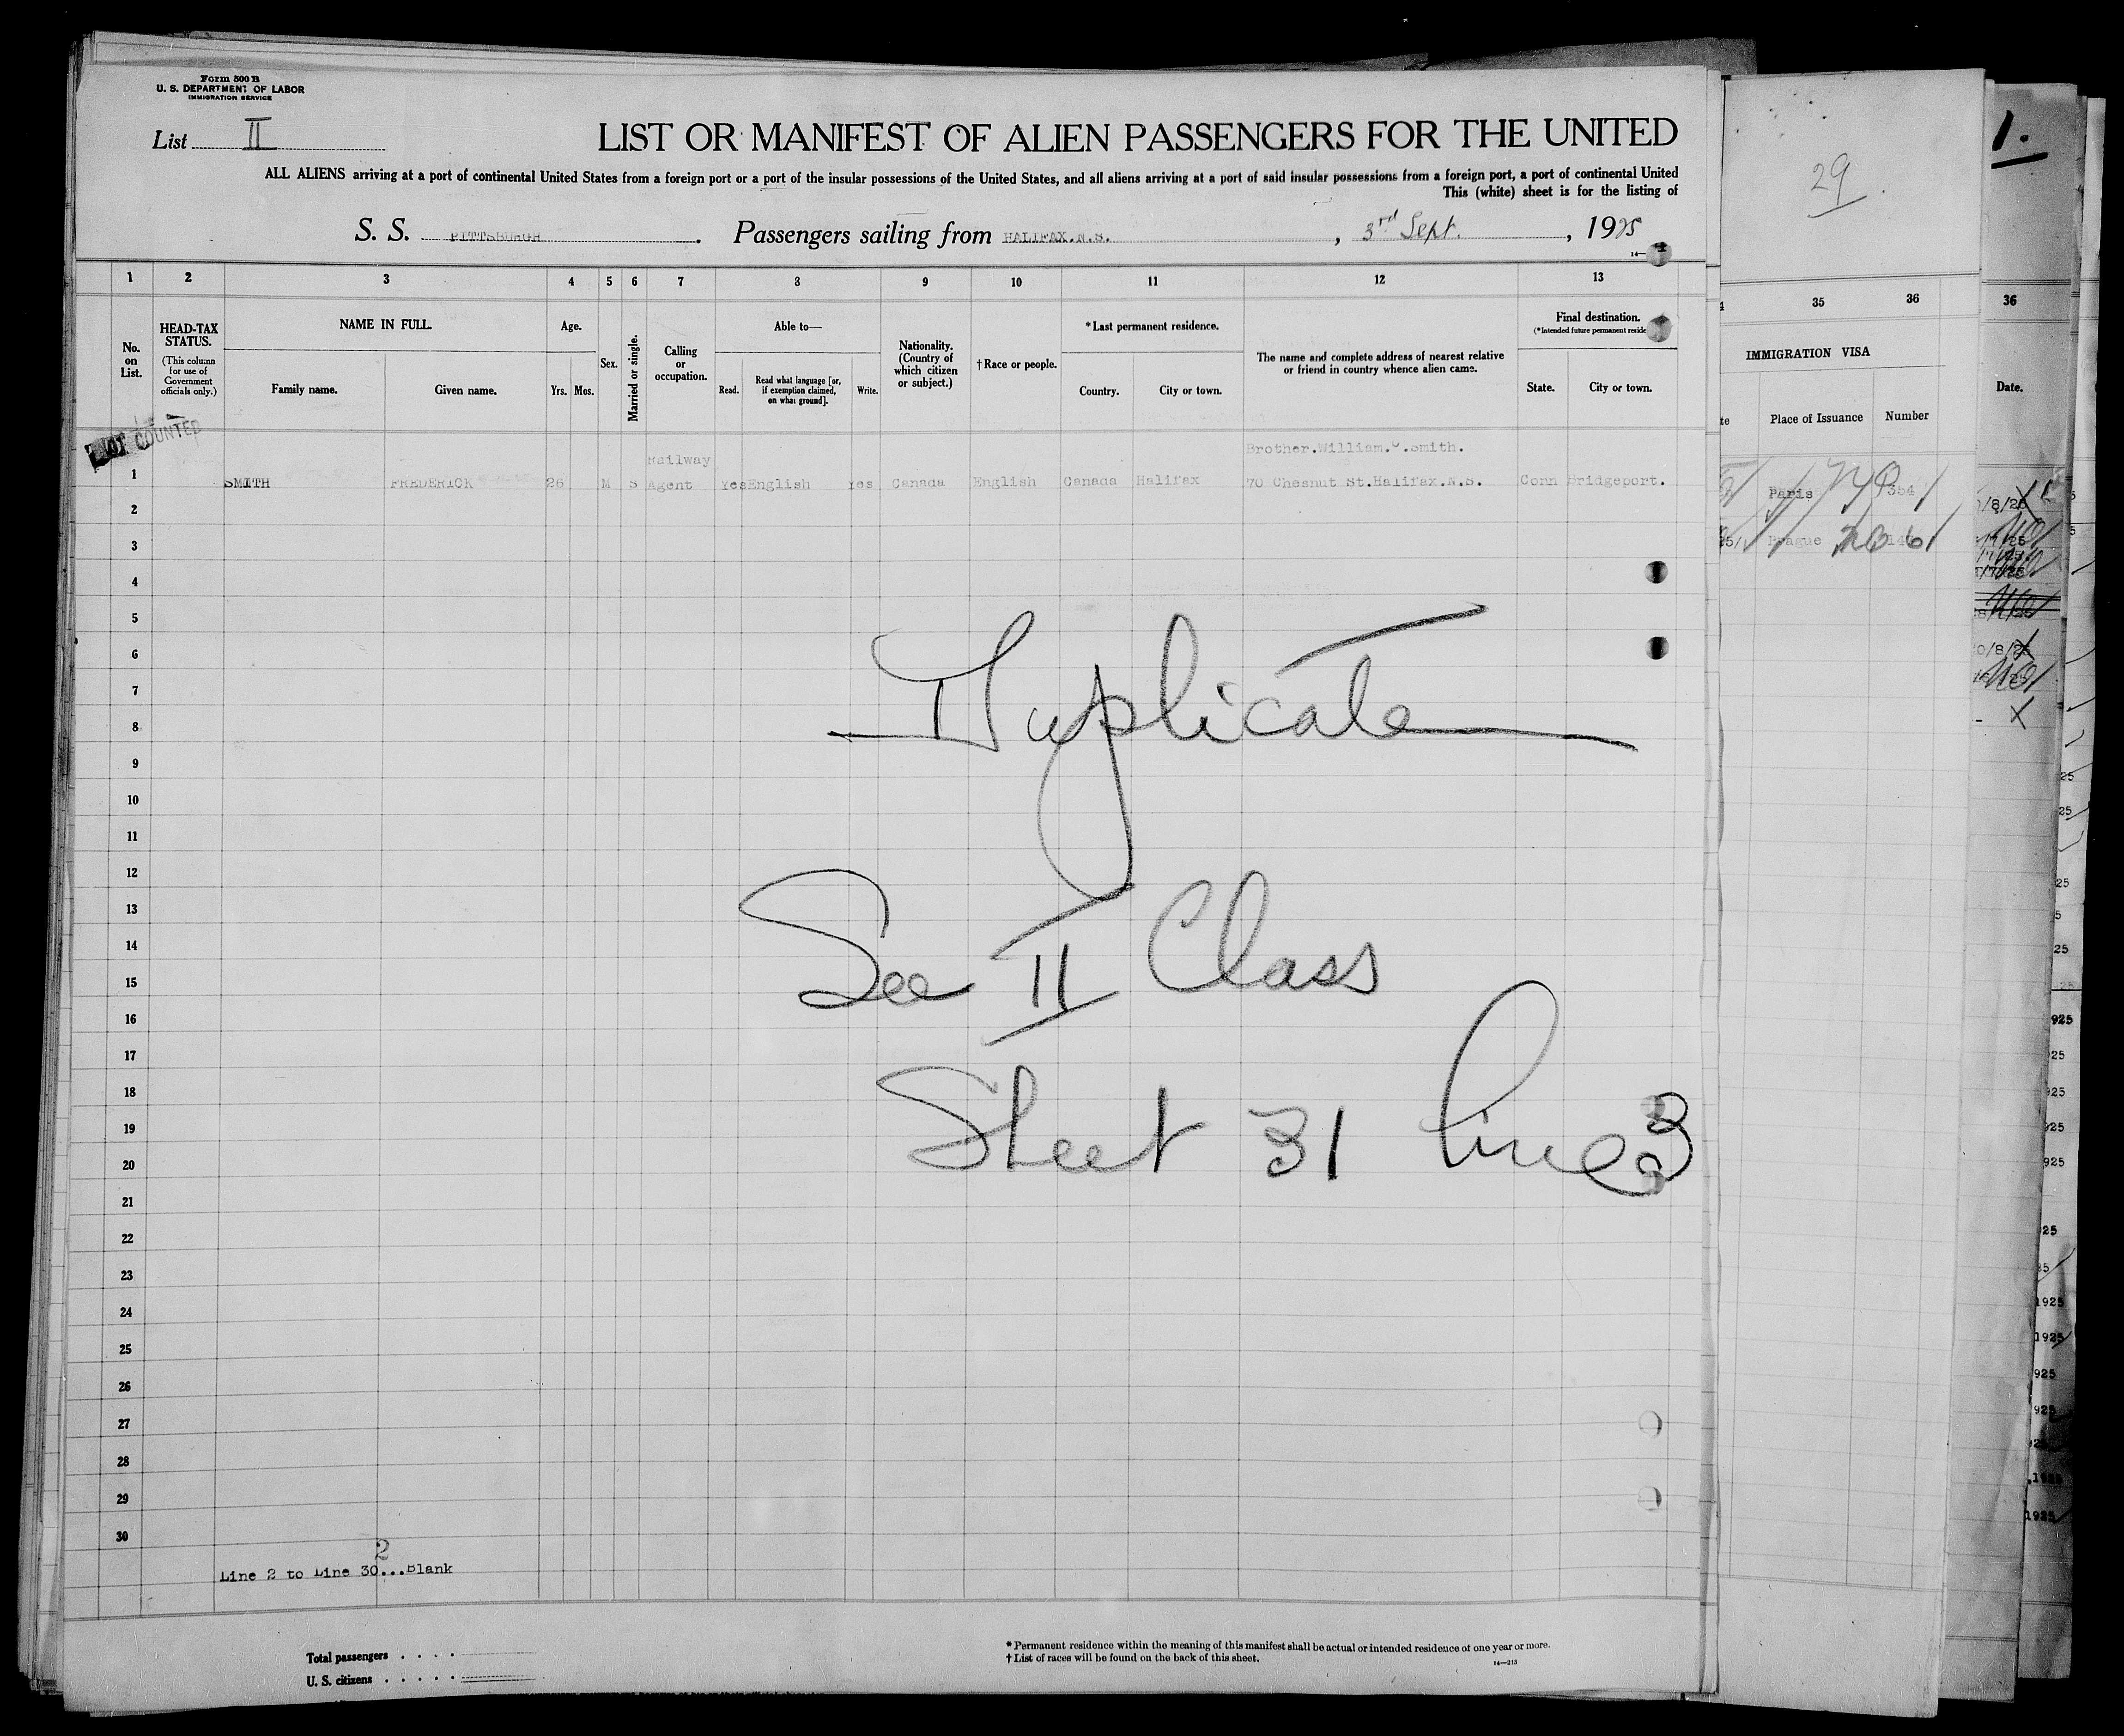 Form 500 B
U. S. DEPARTMENT OF LABOR
IMMIGRATION SERVICE
List II
LIST OR MANIFEST OF ALIEN PASSENGERS FOR THE UNITED
ALL ALIENS arriving at a port of continental United States from a foreign port or a port of the insular possessions of the United States, and all aliens arriving at a port of said insular possessions from a foreign port, a port of continental United
This (white) sheet is for the listing of
S. S. PITTSBURGH. Passengers sailing from HALIFAX.N.S. , 3rd Sept. , 1925
1 2 3 4 5 6 7 8 9 10 11 12 13
No. on List.
HEAD-TAX STATUS.
(This column for use of Government officials only.)
NAME IN FULL.
Family name. Given name.
Age.
Yrs. Mos.
Sex.
Married or single.
Calling or occupation.
Able to—
Read. Read what language [or, if exemption claimed, on what ground]. Write.
Nationality. (Country of which citizen or subject.)
†Race or people.
*Last permanent residence.
Country. City or town.
The name and complete address of nearest relative or friend in country whence alien came.
Final destination.
(*Intended future permanent reside
State. City or town.
NOT COUNTED
Brother.William.C.Smith.
Railway
1 SMITH FREDERICK 26 M S Agent Yes English Yes Canada English Canada Halifax 70 Chesnut St.Halifax.N.S. Conn Bridgeport.
2
3
4
5
6
7
8
9
10
11
12
13
14
15
16
17
18
19
20
21
22
23
24
25
26
27
28
29
30
Duplicate
See II Class
Sheet 31 line 3
2
Line 2 to Line 30...Blank
Total passengers . . . .
U. S. citizens . . . . .
* Permanent residence within the meaning of this manifest shall be actual or intended residence of one year or more.
† List of races will be found on the back of this sheet.
14—213
29
35 36
IMMIGRATION VISA
Place of Issuance Number
Paris 354
Prague
1.
36
Date.